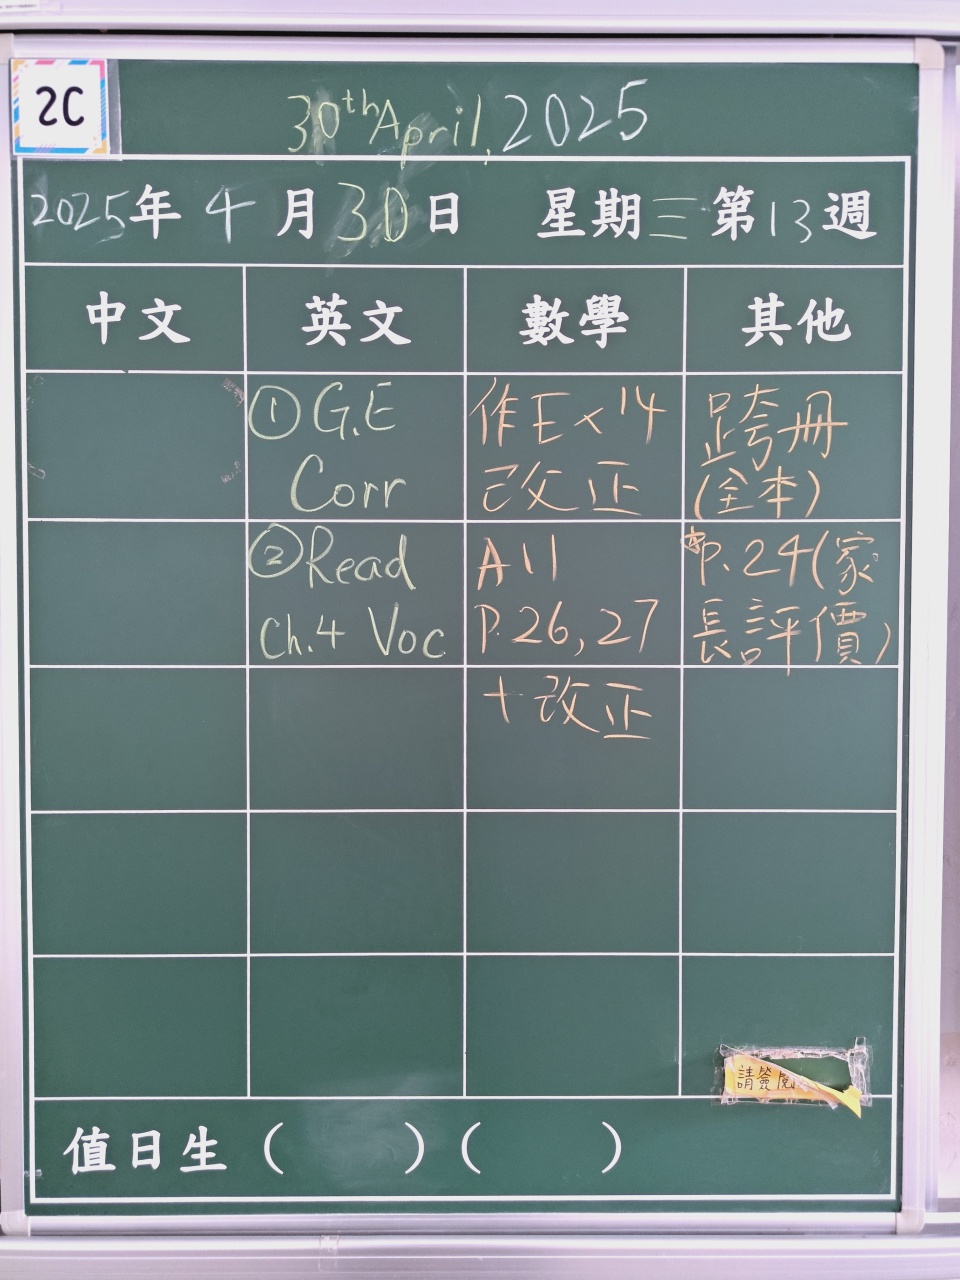 2C
30th April, 2025
2025年4月30日 星期三 第13週
中文 英文 數學 其他
①G.E 作Ex14 跨冊
Corr 改正 (全本)
②Read A11 *p.24(家
Ch.4 Voc P.26,27 長評價)
+改正
請簽閱
值日生( )( )